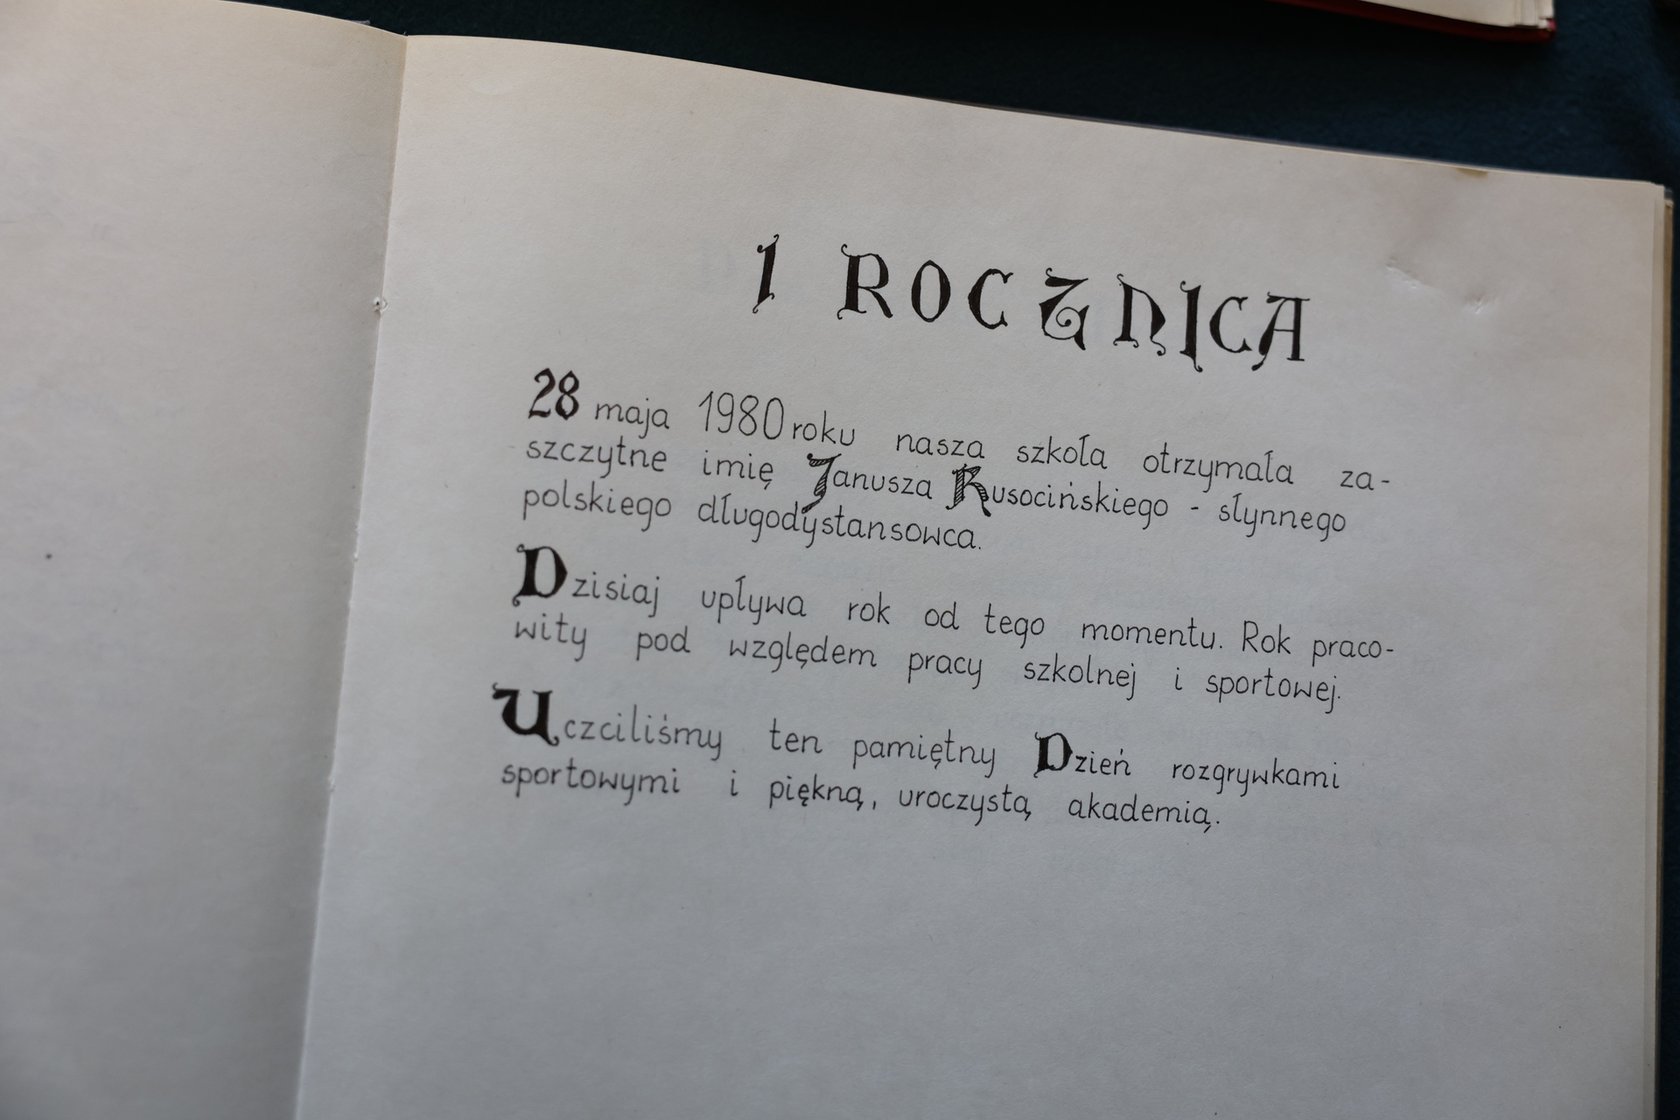 I ROCZNICA
28 maja 1980 roku nasza szkoła otrzymała za-
szczytne imię Janusza Kusocińskiego - słynnego
polskiego długodystansowca.
Dzisiaj upływa rok od tego momentu. Rok praco-
wity pod względem pracy szkolnej i sportowej.
Uczciliśmy ten pamiętny Dzień rozgrywkami
sportowymi i piękną, uroczystą akademią.